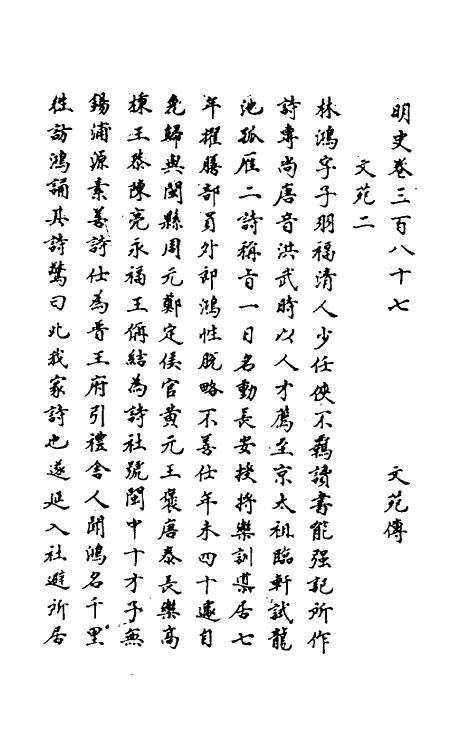 明史卷三百八十七　文苑傳
文苑二
林鴻字子羽福清人少任俠不羈讀書能强記所作
詩專尚唐音洪武時以人才薦至京太祖臨軒試龍
池孤雁二詩稱旨一日名動長安授將樂訓導居七
年擢膳部員外郎鴻性脱略不善仕年未四十遽自
免歸與閩縣周元鄭定侯官黄元王褒唐泰長樂高
棅王恭陳亮永福王偁結為詩社號閩中十才子無
錫浦源素善詩仕為晋王府引禮舍人聞鴻名千里
徃訪鴻誦其詩驚曰此我家詩也遂延入社避所居